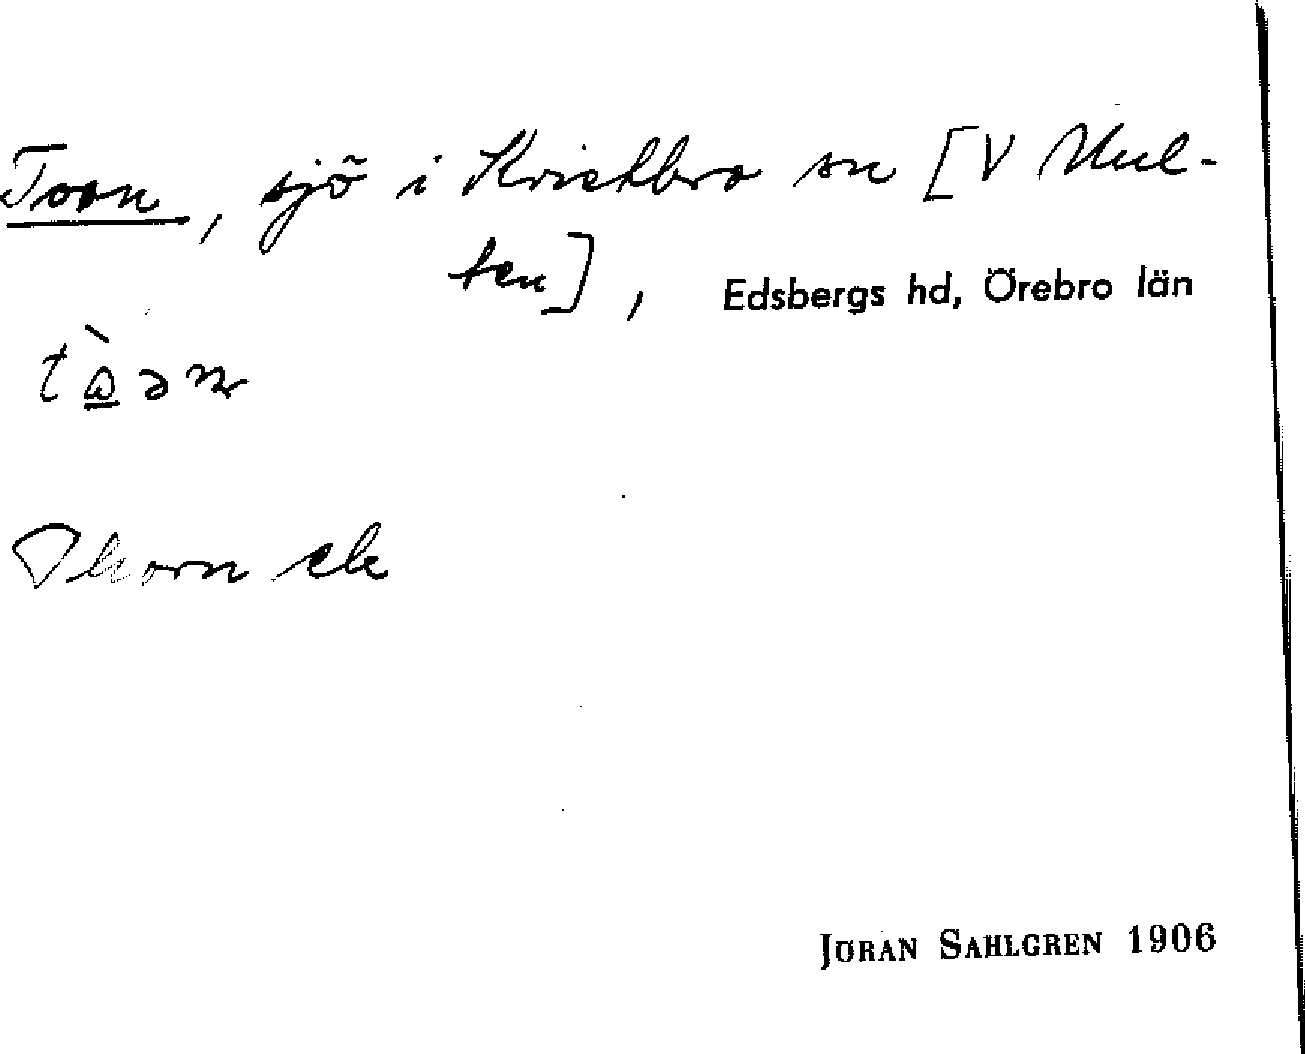 Toon, sjö i Knistbro sn [V Mul-
ten], Edsbergs hd, Örebro län
Thorn ek
JÖRAN SAHLGREN 1906